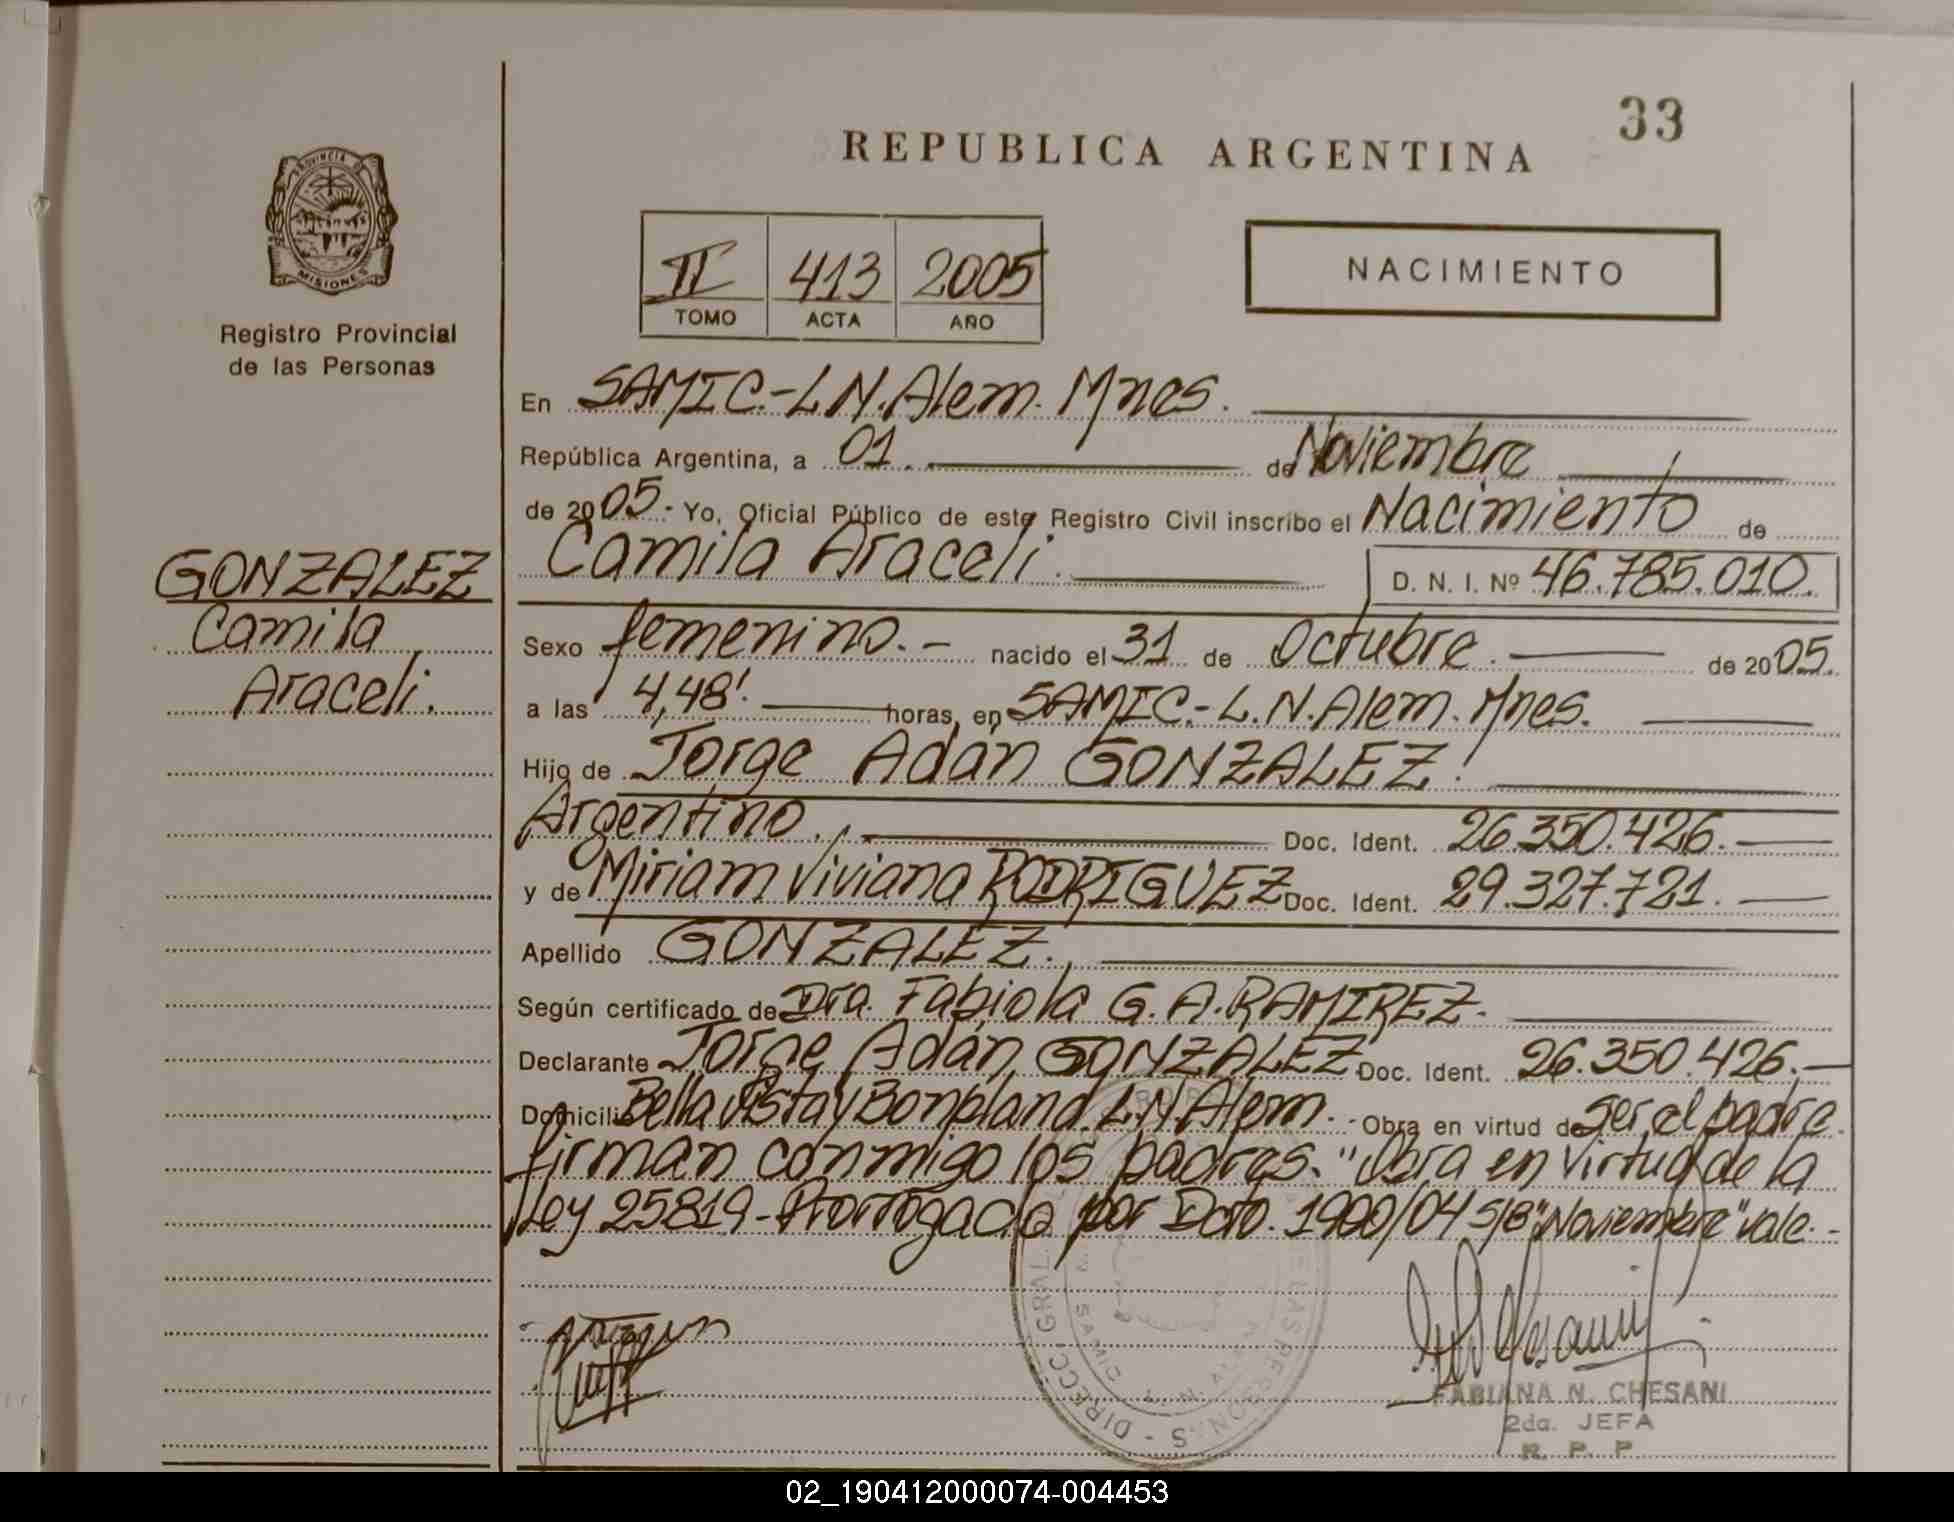 33
REPUBLICA ARGENTINA
PROVINCIA DE
MISIONES
Registro Provincial
de las Personas
II 413 2005
TOMO ACTA AÑO
NACIMIENTO
En SAMIC.-L.N.Alem. Mnes.
República Argentina, a 01. de Noviembre
de 2005.- Yo, Oficial Público de este Registro Civil inscribo el Nacimiento de
Camila Araceli. D. N. I. Nº 46.785.010.
GONZALEZ
Camila
Araceli.
Sexo femenino.- nacido el 31 de Octubre. de 2005.
a las 4,48'. horas, en SAMIC.-L.N.Alem. Mnes.
Hijo de Jorge Adán GONZALEZ.
Argentino. Doc. Ident. 26.350.426.
y de Miriam Viviana RODRIGUEZ Doc. Ident. 29.327.721.
Apellido GONZALEZ.
Según certificado de Dra. Fabiola G.A.RAMIREZ.
Declarante Jorge Adán GONZALEZ Doc. Ident. 26.350.426.-
Domicilio Bella Vista y Bonpland. L.N.Alem. Obra en virtud de ser el padre.
firman conmigo los padres. "Obra en virtud de la
ley 25819-Prorrogada por Dcto. 1900/04 S/B "Noviembre" vale.-
FABIANA N. CHESANI
2da. JEFA
R. P. P.
02_190412000074-004453